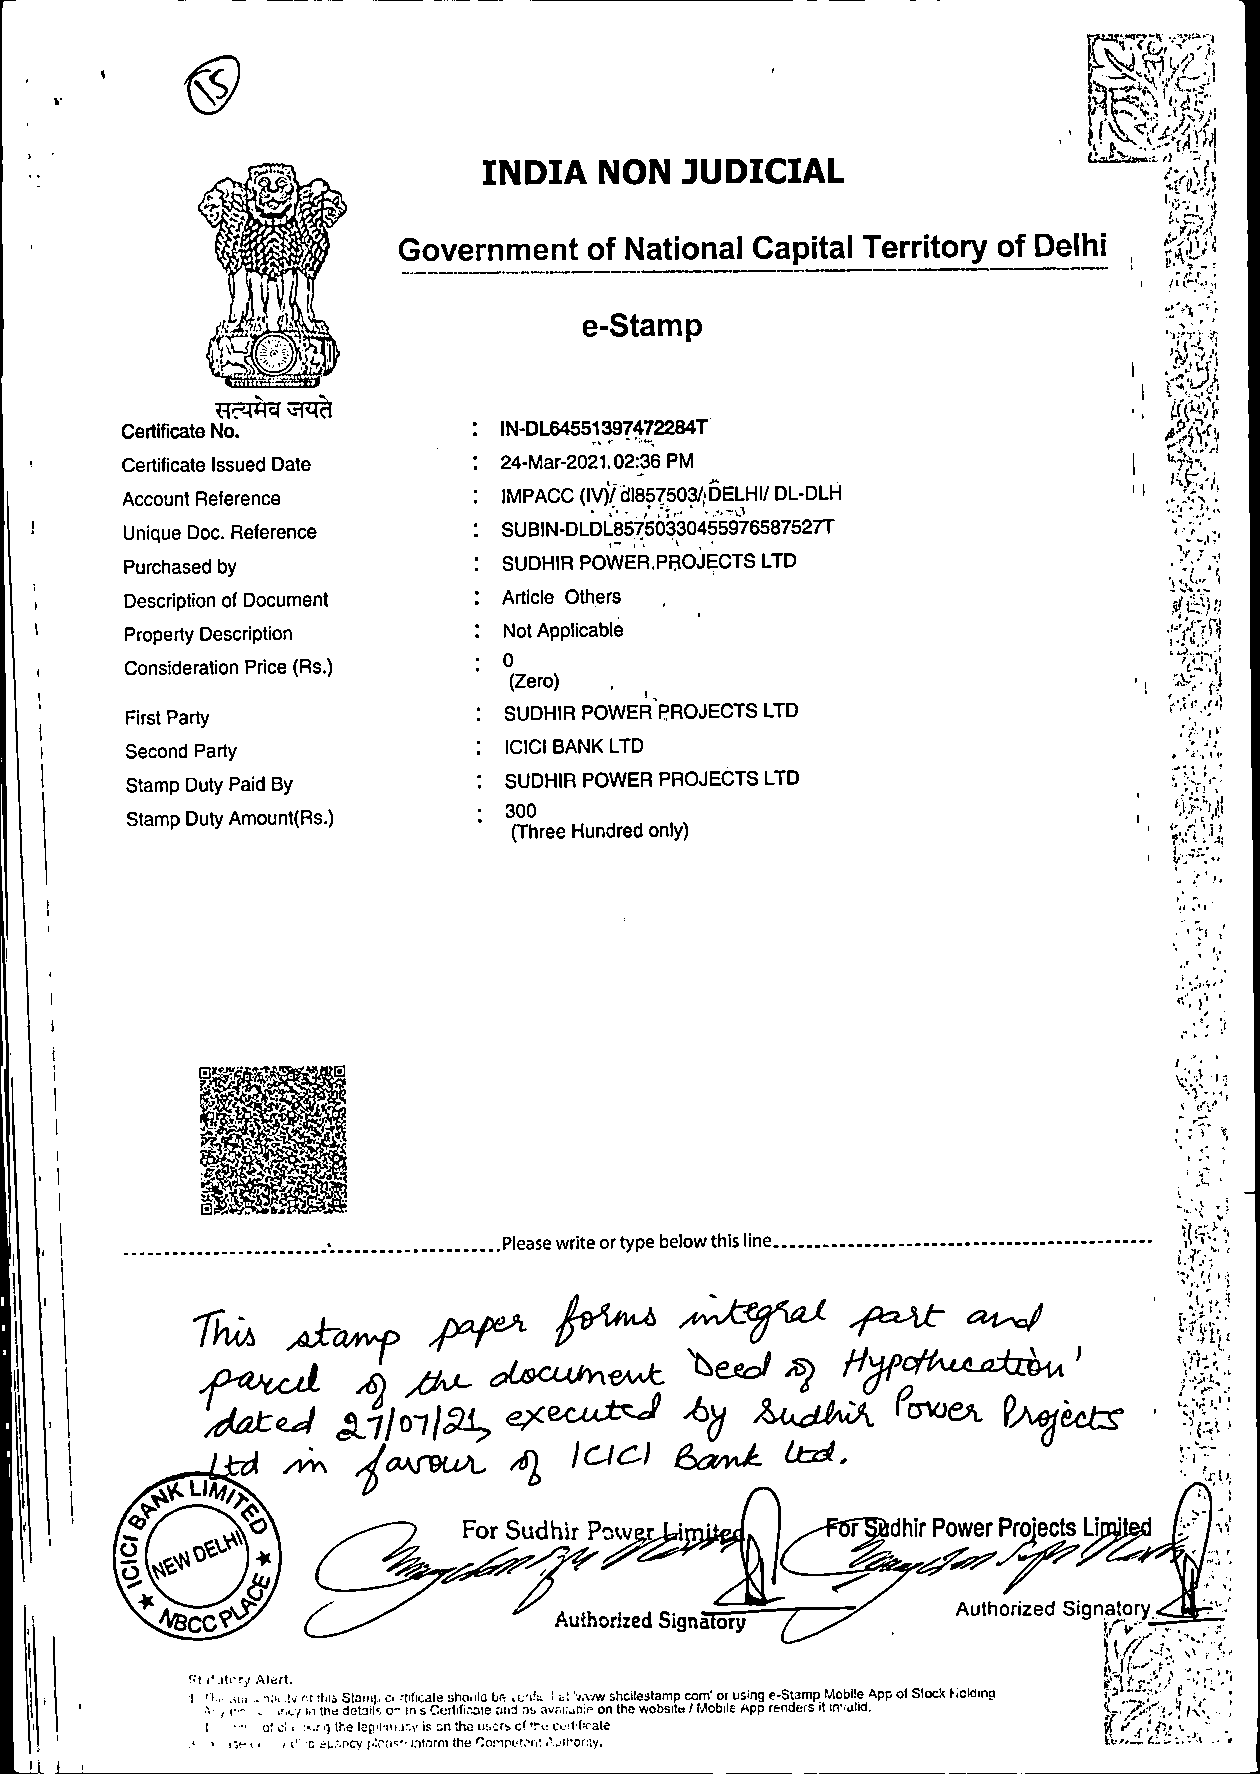 15
INDIA NON JUDICIAL
Government of National Capital Territory of Delhi
e-Stamp
सत्यमेव जयते
Certificate No. : IN-DL64551397472284T
Certificate Issued Date : 24-Mar-2021 02:36 PM
Account Reference : IMPACC (IV)/ dl857503/ DELHI/ DL-DLH
Unique Doc. Reference : SUBIN-DLDL85750330455976587527T
Purchased by : SUDHIR POWER PROJECTS LTD
Description of Document : Article Others
Property Description : Not Applicable
Consideration Price (Rs.) : 0
(Zero)
First Party : SUDHIR POWER PROJECTS LTD
Second Party : ICICI BANK LTD
Stamp Duty Paid By : SUDHIR POWER PROJECTS LTD
Stamp Duty Amount(Rs.) : 300
(Three Hundred only)
Please write or type below this line
This stamp paper forms integral part and
parcel of the document 'Deed of Hypothecation'
dated 27/07/21, executed by Sudhir Power Projects
Ltd in favour of ICICI Bank Ltd.
ICICI BANK LIMITED
NEW DELHI
NBCC PLACE
For Sudhir Power Limited
For Sudhir Power Projects Limited
Authorized Signatory
Authorized Signatory
Statutory Alert.
this Stamp certificate should be at 'www shcilestamp com' or using e-Stamp Mobile App of Stock Holding
in the details on this Certificate and as available on the website / Mobile App renders it invalid.
the legitimacy is on the users of the certificate
please inform the Competent Authority.